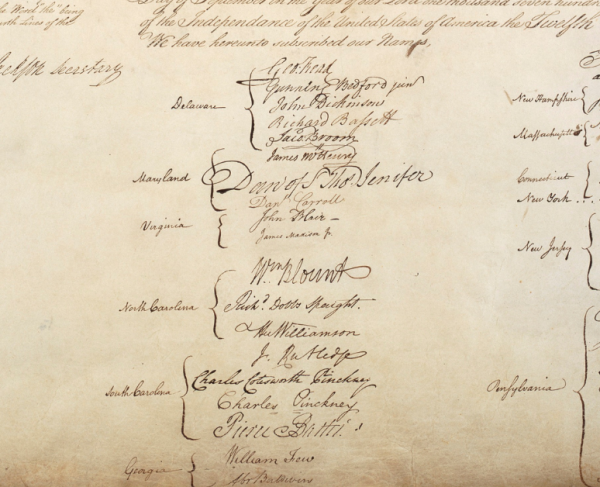 Word "the" being
Lines of the
Secretary
in the Year of our Lord one thousand seven hundred
of the Independance of the United States of America the Twelfth
We have hereunto subscribed our Names,
Delaware
Geo: Read
Gunning Bedford jun
John Dickinson
Richard Bassett
Jaco: Broom
Maryland
James McHenry
Dan of St Thos. Jenifer
Danl Carroll
Virginia
John Blair —
James Madison Jr.
North Carolina
Wm Blount
Richd. Dobbs Spaight.
Hu Williamson
South Carolina
J. Rutledge
Charles Cotesworth Pinckney
Charles Pinckney
Pierce Butler.
Georgia
William Few
Abr Baldwin
New Hampshire
Massachusetts
Connecticut
New York . .
New Jersey
Pensylvania